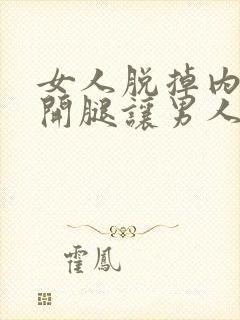 女人脱掉内
開腿讓男人
霍鳳